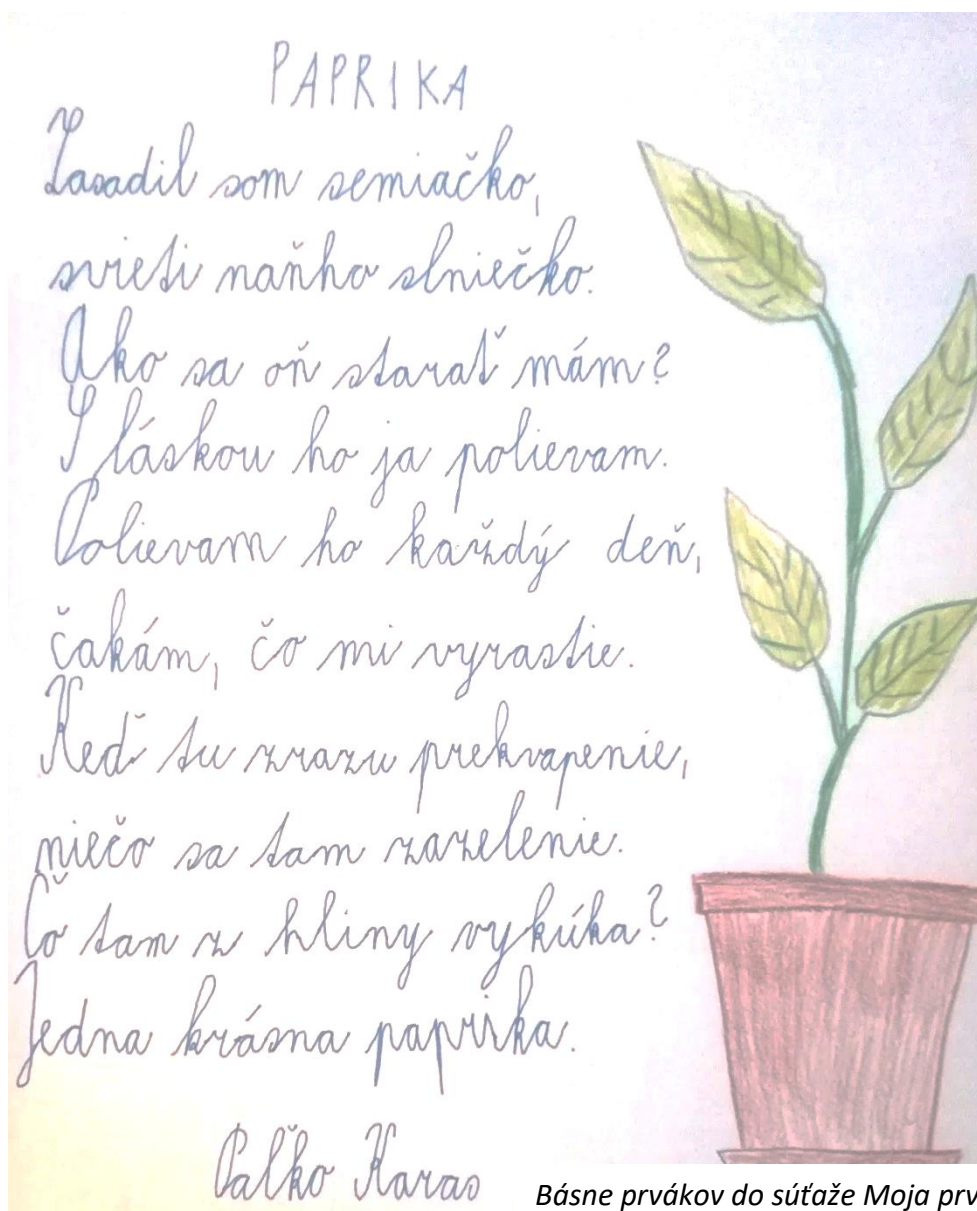 PAPRIKA
Zasadil som semiačko,
svieti naňho slniečko.
Ako sa oň starať mám?
S láskou ho ja polievam.
Polievam ho každý deň,
čakám, čo mi vyrastie.
Keď tu zrazu prekvapenie,
niečo sa tam zazelenie.
Čo tam z hliny vykúka?
Jedna krásna paprika.
Paľko Karas
Básne prvákov do súťaže Moja prv